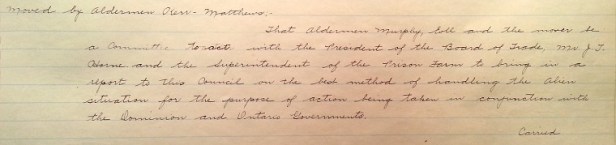 Moved by Aldermen Kerr - Matthews:-
That Aldermen Murphy, and the mover be
a Committee to act with the President of the Board of Trade, Mr J. T.
Horne and the Superintendent of the Prison Farm to bring in a
report to this Council on the best method of handling the Alien
situation for the purpose of action being taken in conjunction with
the Dominion and Ontario Governments.
Carried